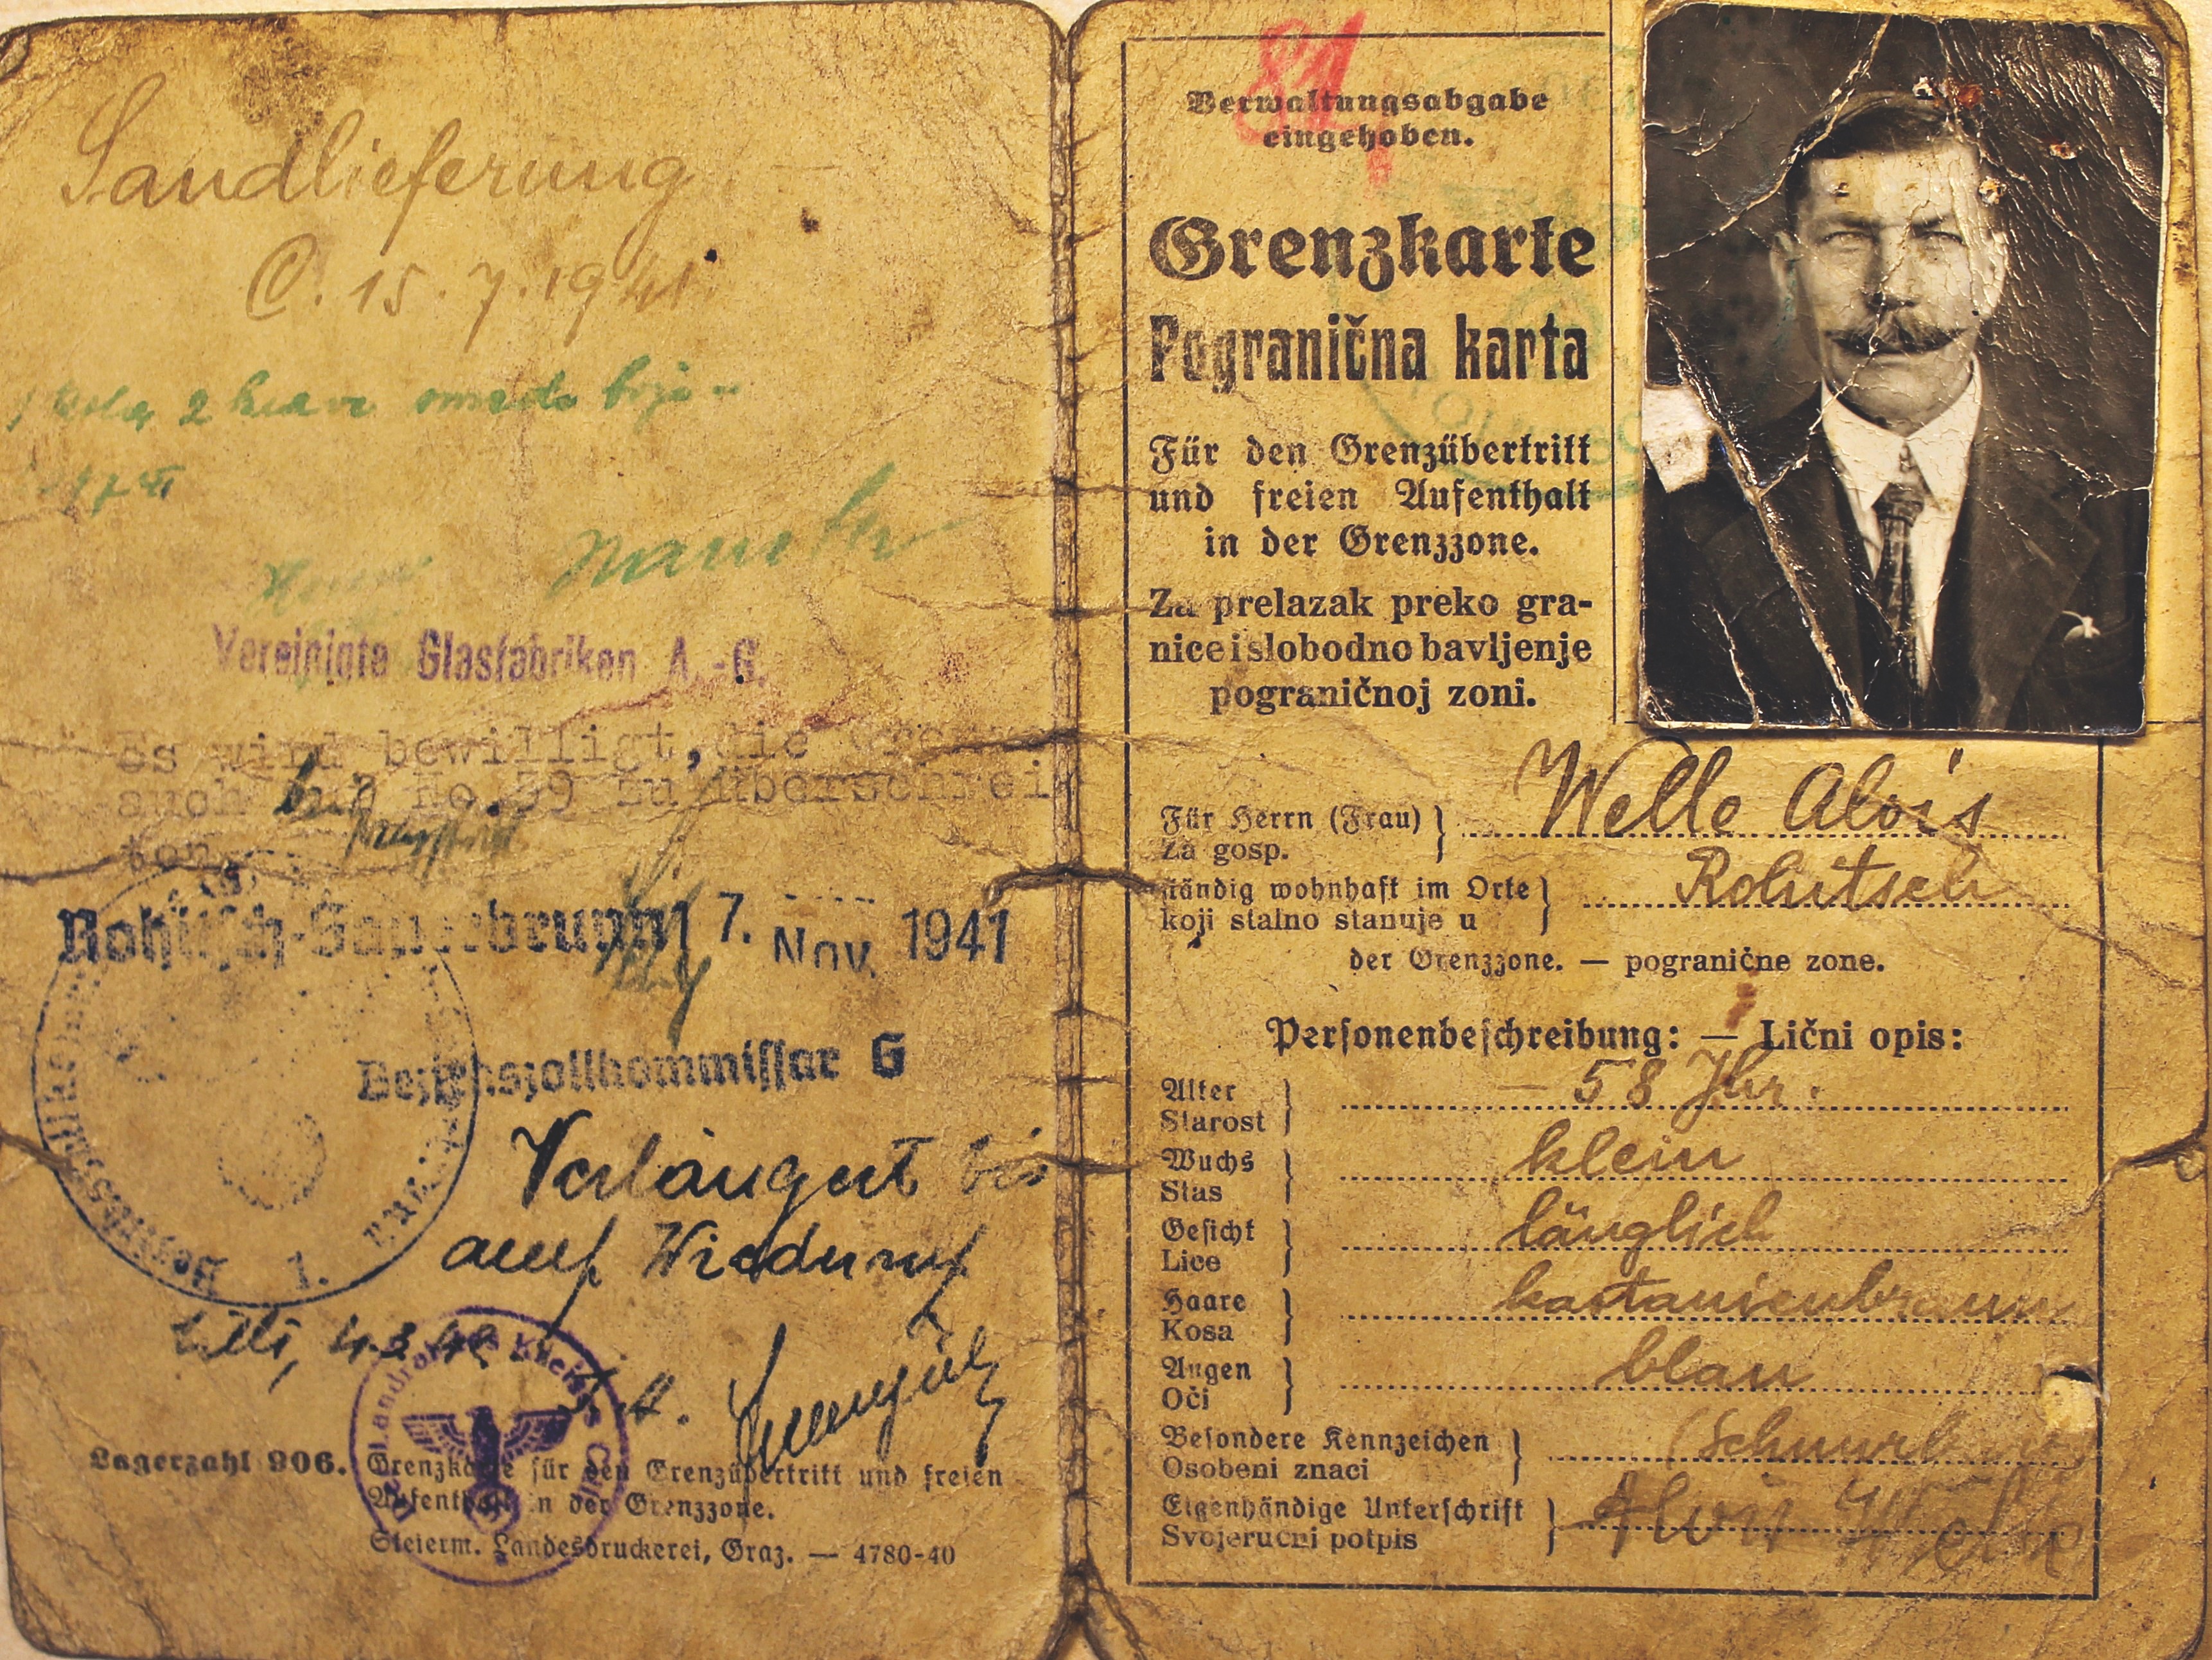 Sandlieferung
C. 15.7.1941
2
Vereinigte Glasfabriken A.-G.
Es wird bewilligt, die
auch bei No. 59 zu überschrei
ten.
Rohitsch-Sauerbrunn 7. Nov. 1941
Bezirkszollkommissar G
Verlängert bis
auf Widerruf
Cilli, 4.3.42
I.A.
Landrat des Kreises Cilli
1.
Lagerzahl 906. Grenzkarte für den Grenzübertritt und freien
Aufenthalt in der Grenzzone.
Steierm. Landesdruckerei, Graz. — 4780-40
Verwaltungsabgabe
eingehoben.
Grenzkarte
Pogranična karta
Für den Grenzübertritt
und freien Aufenthalt
in der Grenzzone.
Za prelazak preko gra-
nice i slobodno bavljenje
pograničnoj zoni.
Für Herrn (Frau) Welle Alois
Za gosp.
ständig wohnhaft im Orte Rohitsch
koji stalno stanuje u
der Grenzzone. — pogranične zone.
Personenbeschreibung: — Lični opis:
Alter — 58 Jhr.
Starost
Wuchs klein
Stas
Gesicht länglich
Lice
Haare kastanienbraun
Kosa
Augen blau
Oči
Besondere Kennzeichen
Osobeni znaci
Eigenhändige Unterschrift Alois Welle
Svojeručni potpis